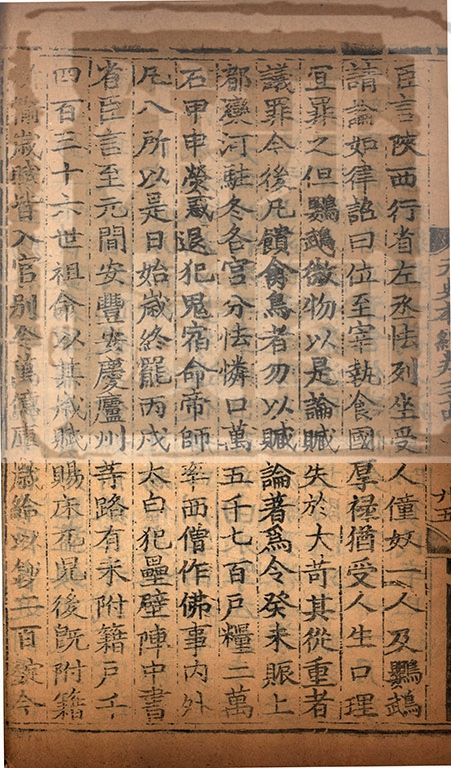 臣言陝西行省左丞怯列坐受人僮奴一人及鸚鵡
請論如律詔曰位至宰執食國厚祿猶受人生口理
宜罪之但鸚鵡微物以是論贓失於大苛其從重者
議罪今後凡饋禽鳥者勿以贓論著爲令癸未賑上
都灤河駐冬各宮分怯憐口萬五千七百戶糧二萬
石甲申熒惑退犯鬼宿命帝師率西僧作佛事內外
凡八所以是日始歲終罷丙戌太白犯壘壁陣中書
省臣言至元間安豐安慶廬州等路有未附籍戶千
四百三十六世祖命以其歲賦賜床兀兒後旣附籍
所輸歲賦皆入官別令萬億庫歲給以鈔三百錠今
八五